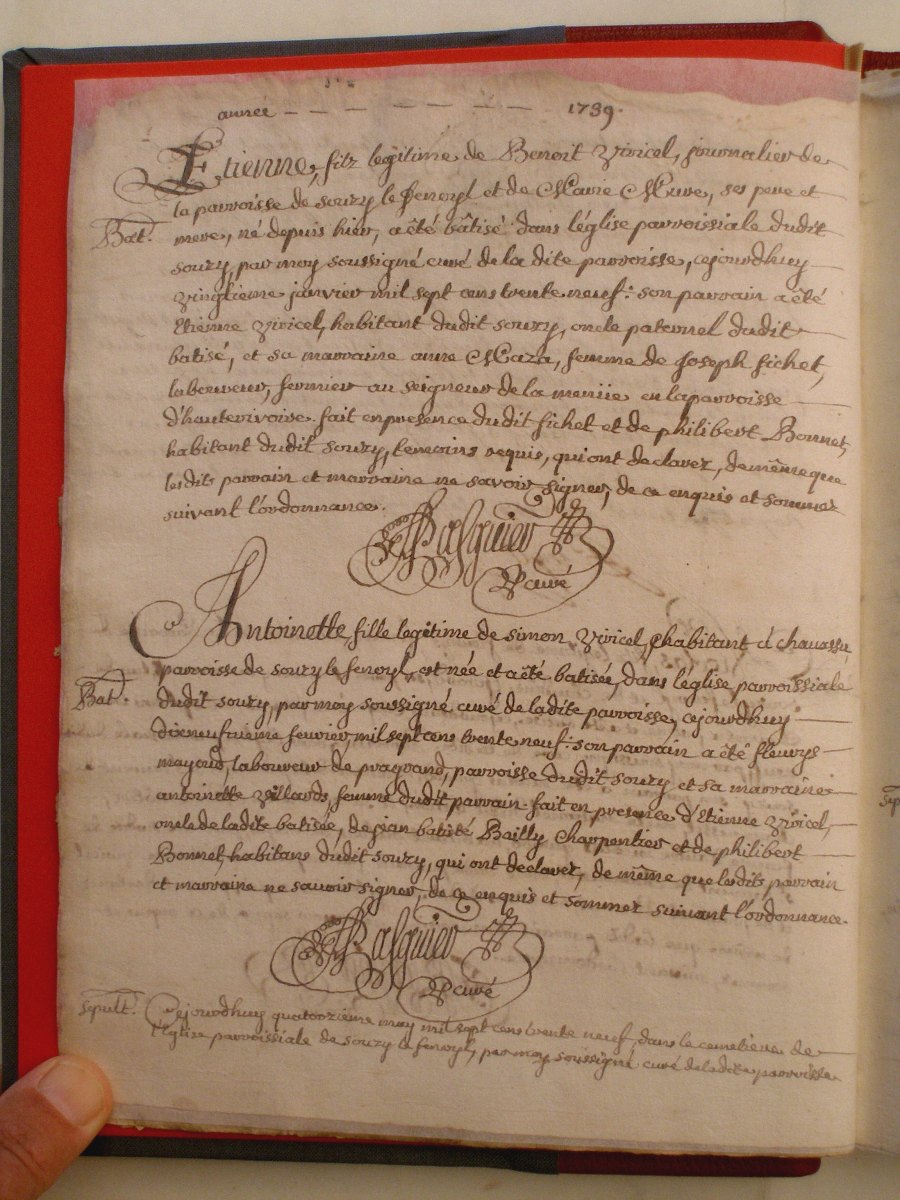 année - - - - - - - 1739.
Etienne, filz legitime de Benoit Viricel, journalier de
la parroisse de souzy le fenoyl et de Marie Mure, ses pere et
Bat.
mere, né depuis hier, a été bâtisé dans l'église parroissiale dudit
souzy, par moy soussigné curé de la dite parroisse, cejourdhuy
vingtieme janvier mil sept cens trente neuf: son parrain a été
Etienne Viricel, habitant dudit souzy, oncle paternel dudit
batisé, et sa marraine anne Maza, femme de Joseph fichet,
laboureur, fermier au seigneur de la menüe en la parroisse
d'hauterivoire. fait en presence dudit fichet et de philibert Bonnet,
habitant dudit souzy, temoins requis, qui ont declarez, de même que
lesdits parrain et marraine ne savoir signer, de ce enquis et sommez
suivant l'ordonnance.
Pasquier
curé
Antoinette, fille legitime de simon Viricel, habitant à
parroisse de souzy le fenoyl, est née et a été batisée, dans l'église parroissiale
Bat.
dudit souzy, par moy soussigné curé de ladite parroisse, cejourdhuy
dixneufvieme fevrier, mil sept cens trente neuf: son parrain a été fleurys
mayoud, laboureur de pragrand, parroisse dudit souzy et sa marraine
antoinette Villards, femme dudit parrain. fait en presence d'Etienne Viricel,
oncle de ladite batisée, de jean batisté Bailly Charpentier et de philibert
Bonnet, habitans dudit souzy, qui ont declarez, de même que lesdits parrain
et marraine ne savoir signer, de ce enquis et sommez suivant l'ordonnance.
Pasquier
curé
sepult. Cejourdhuy quatorzieme may mil sept cens trente neuf, dans le cemetiere de
l'église parroissiale de souzy le fenoyl, par moy soussigné curé de ladite parroisse